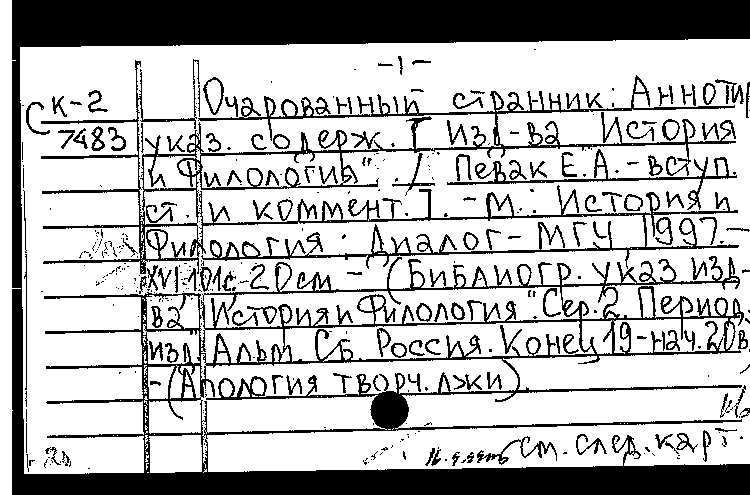 -1-
СК-2 Очарованный странник: Аннотир
7483 указ. содерж. [ Изд-ва История
и Филология" . / Певак Е.А. - вступ.
ст. и коммент. ]. - М.: История и
Филология: Диалог-МГУ 1997.-
XVI-101с-20см - (Библиогр. указ изд-
ва" История и Филология". Сер. 2. Период.
изд. Альм. Сб. Россия. Конец 19-нач. 20в.
-(Апология творч. лжи).
см. след. карт.